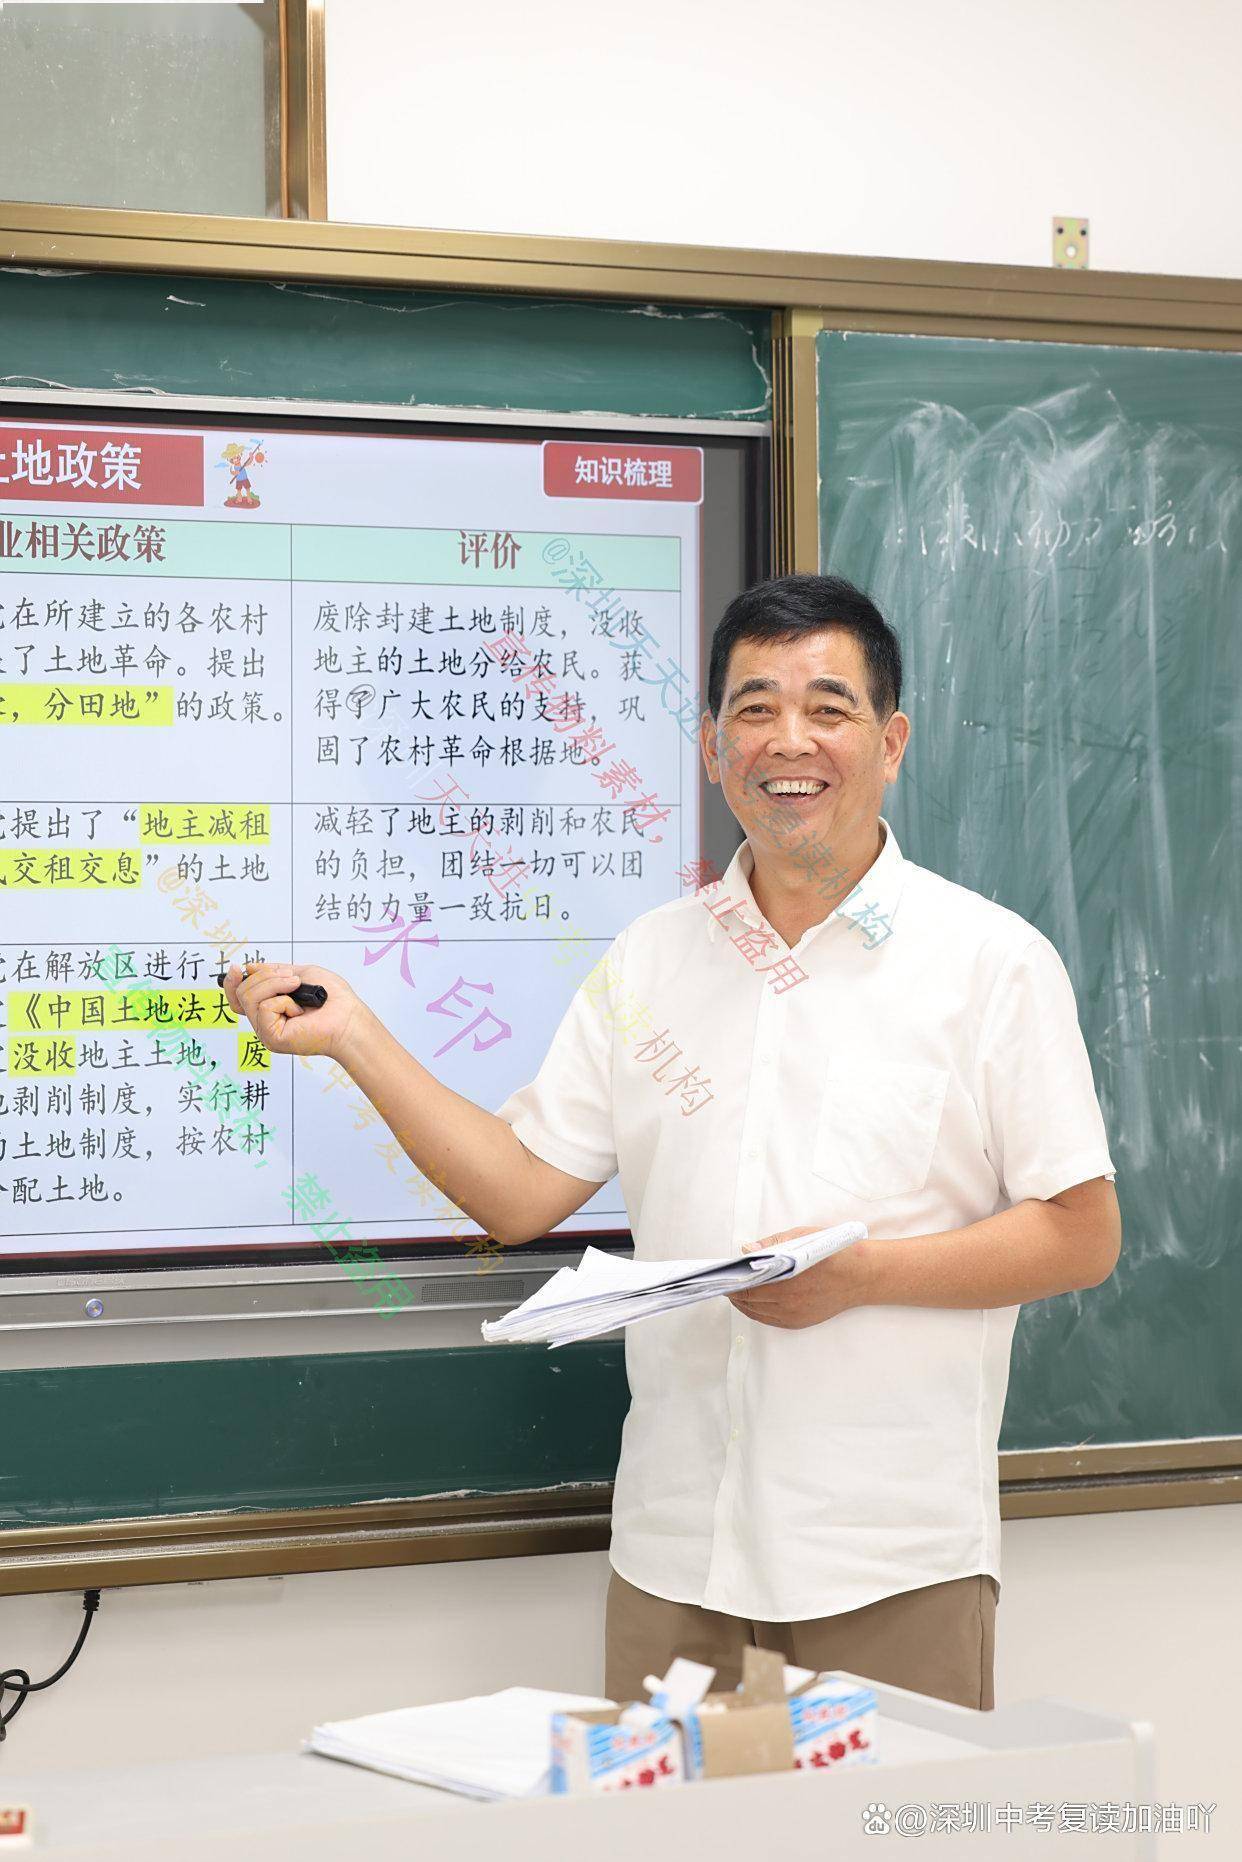 土地政策
知识梳理
业相关政策
评价
党在所建立的各农村
展了土地革命。提出
，分田地”的政策。
废除封建土地制度，没收
地主的土地分给农民。获
得了广大农民的支持，巩
固了农村革命根据地。
提出了“地主减租
交租交息”的土地
减轻了地主的剥削和农民
的负担，团结一切可以团
结的力量一致抗日。
在解放区进行土地
《中国土地法大
没收地主土地，废
剥削制度，实行耕
土地制度，按农村
配土地。
@深圳天天进中考复读机构
宣传物料素材，禁止盗用
@深圳天天进中考复读机构
水印
@深圳天天进中考复读机构
宣传物料素材，禁止盗用
@深圳中考复读加油吖